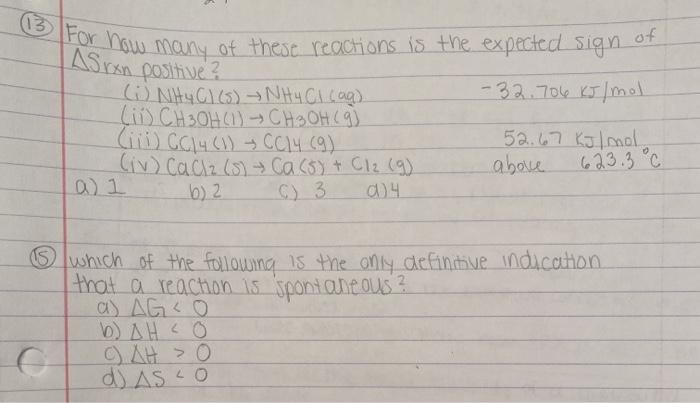 13 For how many of these reactions is the expected sign of
ΔSrxn positive?
(i) NH4Cl(s) → NH4Cl(aq) -32.706 KJ/mol
(ii) CH3OH(l) → CH3OH(g)
(iii) CCl4(l) → CCl4 (g) 52.67 KJ/mol
(iv) CaCl2 (s) → Ca(s) + Cl2 (g) above 623.3°C
a) 1 b) 2 c) 3 d) 4
15 which of the following is the only definitive indication
that a reaction is spontaneous?
a) ΔG < 0
b) ΔH < 0
c) ΔH > 0
d) ΔS < 0